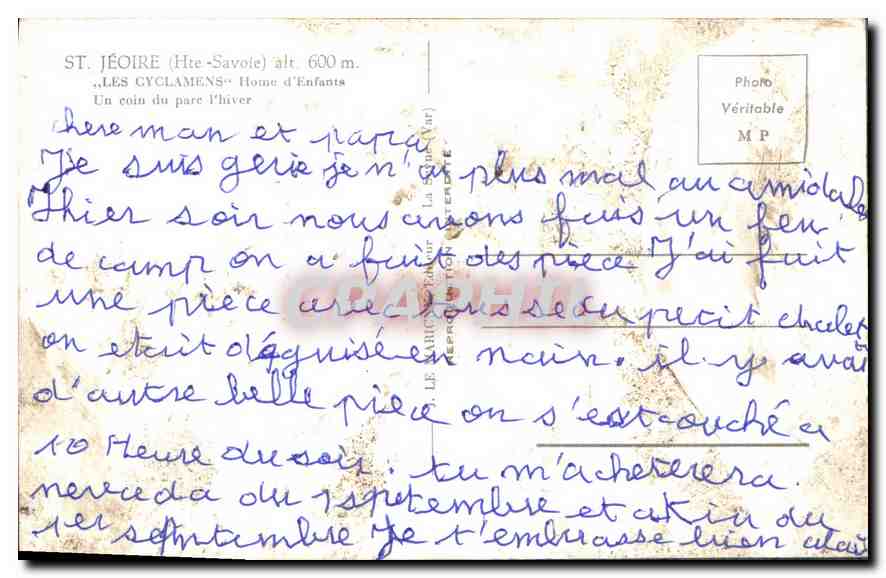 ST. JÉOIRE (Hte-Savoie) alt. 600 m.
„LES CYCLAMENS“ Home d'Enfants
Un coin du parc l'hiver
Photo
Véritable
M P
chere man et papa
Je suis gerie je n'ai plus mal au amidales
Ihier soir nous avons fais un feu
de camp on a fait des piece J'ai fait
une piece avec tous se du petit chalet
on etait déguisé en nain. il y avait
d'autre belle piece on s'est couché a
10 Heure du soir. tu m'acheterera
nevada du 1 septembre et akim du
1er septembre Je t'embrasse bien
REPRODUCTION INTERDITE
CRAPHIL